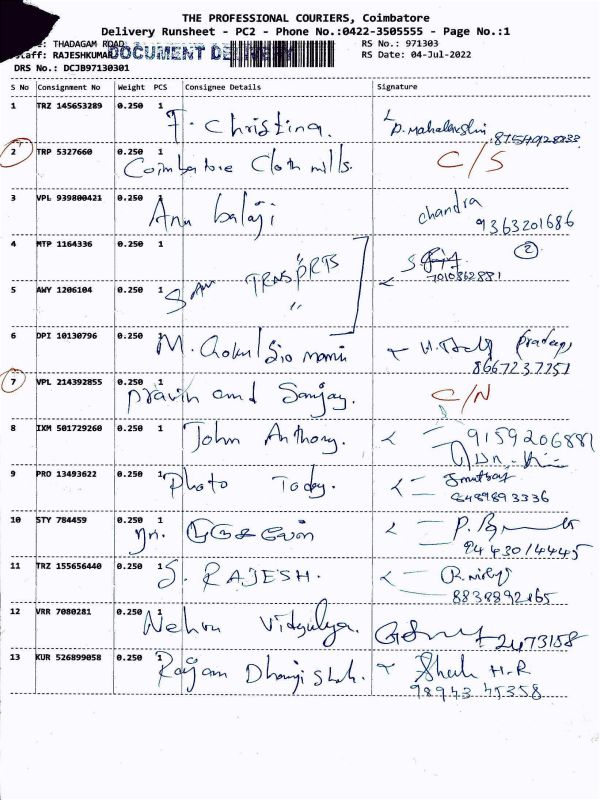 THE PROFESSIONAL COURIERS, Coimbatore
Delivery Runsheet - PC2 - Phone No.:0422-3505555 - Page No.:1
THADAGAM ROAD RS No.: 971303
Staff: RAJESHKUMAR DOCUMENT DELIVERY RS Date: 04-Jul-2022
DRS No.: DCJB97130301
S No Consignment No Weight PCS Consignee Details Signature
1 TRZ 145653289 0.250 1 F. Christina. P. Mahalakshmi
2 TRP 5327660 0.250 1 Coimbatore Cloth mills. C/S
3 VPL 939800421 0.250 1 Anu balaji chandra
9363201686
4 MTP 1164336 0.250 1 TRNSPRTS 2
7010862881
5 AWY 1206104 0.250 1 "
6 DPI 10130796 0.250 1 M. Gokul
8667237751
7 VPL 214392855 0.250 1 pravin and Sanjay. C/N
8 IXM 501729260 0.250 1 John Anthony. 9159206881
9 PRO 13493622 0.250 1 Photo Today.
8489893336
10 STY 784459 0.250 1
94430 14445
11 TRZ 155656440 0.250 1 S. RAJESH.
8838892165
12 VRR 7080281 0.250 1 Nehru Vidyalya. 2473158
13 KUR 526899058 0.250 1 Rajam Dhanji Shah. Shah H.R
98943 45358